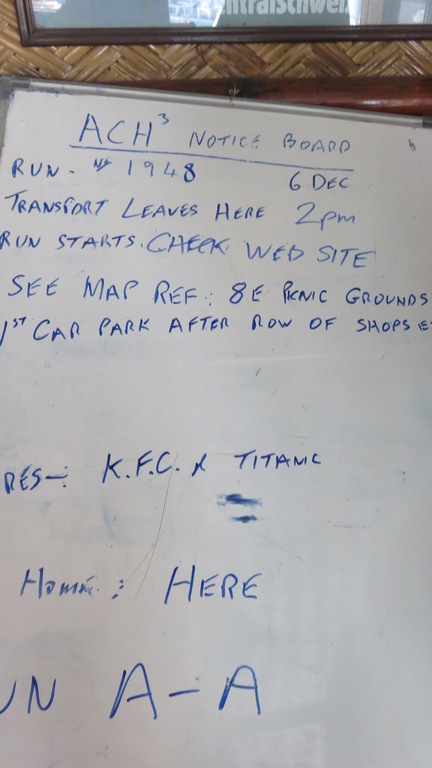 ntralschweiz
ACH³ NOTICE BOARD
RUN - Nº 1948 6 DEC
TRANSPORT LEAVES HERE 2pm
RUN STARTS. CHECK WEB SITE
SEE MAP REF: 8E PICNIC GROUNDS
1ST CAR PARK AFTER ROW OF SHOPS
RES-: K.F.C. & TITANIC
Home : HERE
UN A-A